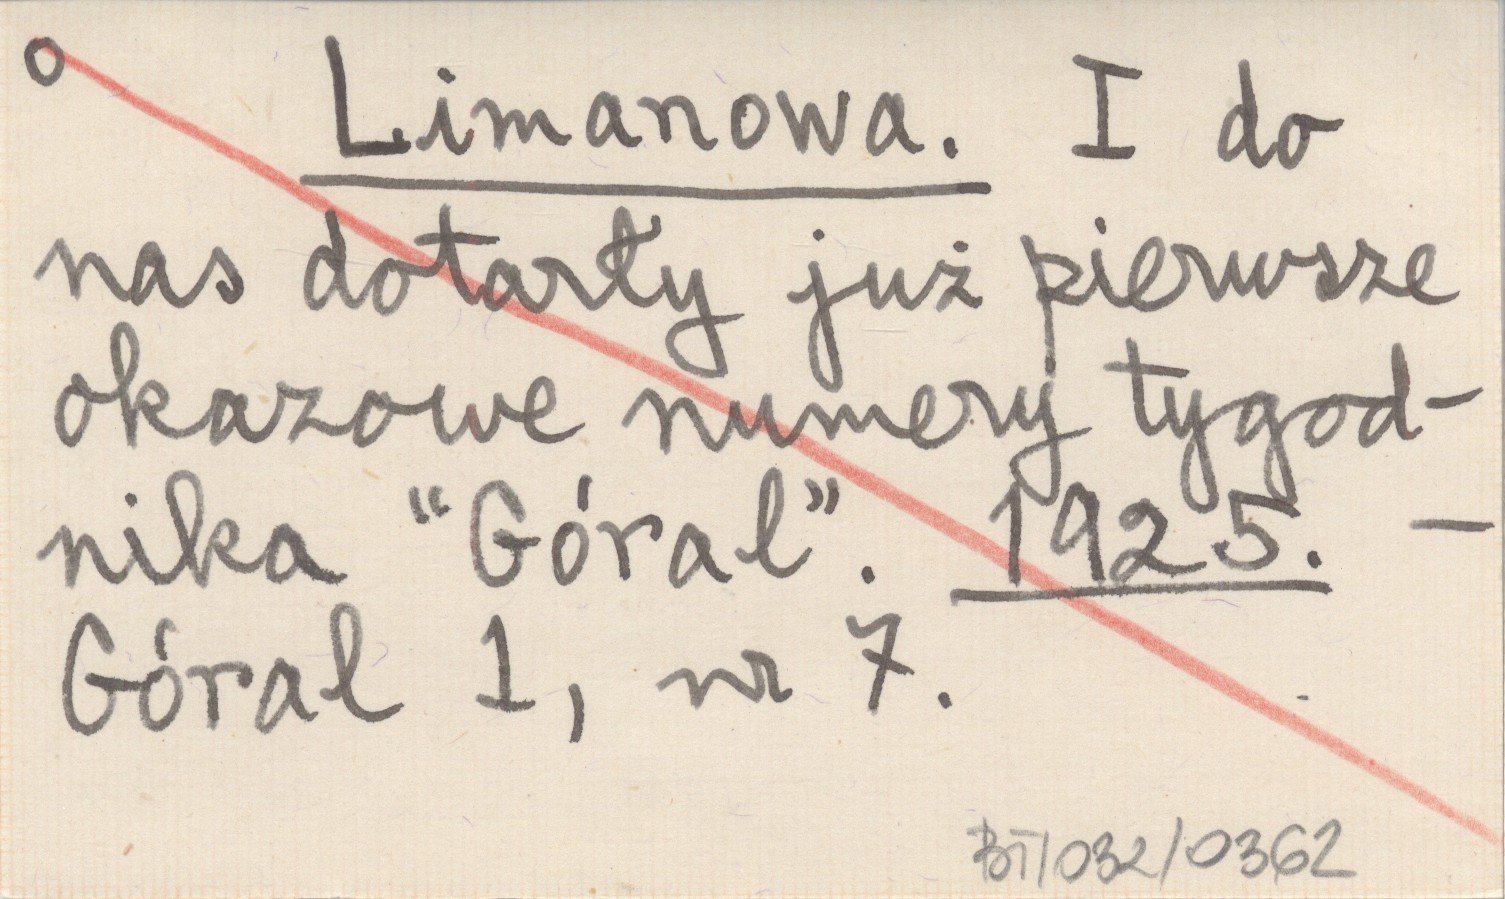 o Limanowa. I do
nas dotarły już pierwsze
okazowe numery tygod-
nika “Góral”. 1925. —
Góral 1, nr 7.
BT/032/0362